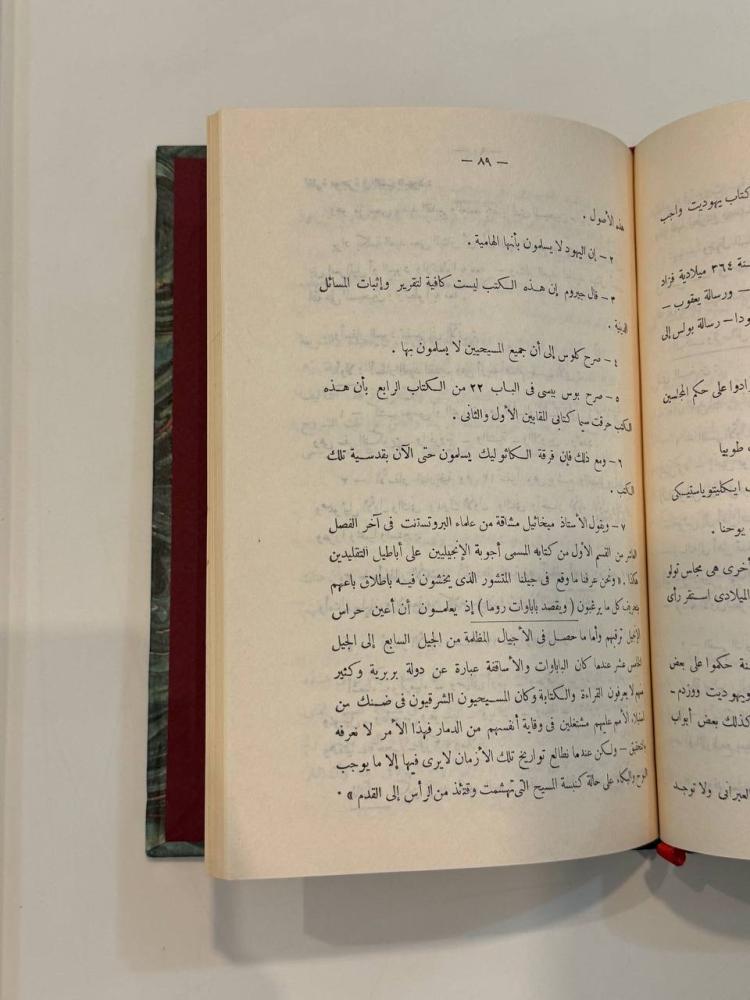 — ٨٩ —
هذه الأصول .
٢ — إن اليهود لا يسلمون بأنها الهامية .
٣ — قال جيروم إن هذه الكتب ليست كافية لتقرير وإثبات المسائل
الدينية .
٤ — صرح كلوس إلى أن جميع المسيحيين لا يسلمون بها .
٥ — صرح بوس بيسى فى الباب ٢٢ من الكتاب الرابع بأن هذه
الكتب حرفت سيما كتابى للمقابين الأول والثانى .
٦ — ومع ذلك فإن فرقة الكاثوليك يسلمون حتى الآن بقدسية تلك
الكتب .
٧ — ويقول الأستاذ ميخائيل مشاقة من علماء البروتستنت فى آخر الفصل
العاشر من القسم الأول من كتابه المسمى أجوبة الإنجيليين على أباطيل التقليديين
هكذا . « ونحن عرفنا ما وقع فى جيلنا المتشور الذى يخشون فيه باطلاق باعهم
بتحريف كل ما يرغبون ( ويقصد باباوات روما ) إذ يعلمون أن أعين حراس
الإنجيل ترقبهم وأما ما حصل فى الأجيال المظلمة من الجيل السابع إلى الجيل
الخامس عشر عندما كان البابوات والأساقفة عبارة عن دولة بربرية وكثير
منهم لا يعرفون القراءة والكتابة وكان المسيحيون الشرقيون فى ضنك من
استيلاء الأمم عليهم مشتغلين فى وقاية أنفسهم من الدمار فهذا الأمر لا نعرفه
بالتحقيق — ولكن عندما نطالع تواريخ تلك الأزمان لا يرى فيها إلا ما يوجب
النوح والبكاء على حالة كنيسة المسيح التى تهشمت وقتئذ من الرأس إلى القدم » .
كتاب يهوديت واجب
سنة ٣٦٤ ميلادية فزاد
— ورسالة يعقوب —
يهودا — رسالة بولس إلى
زادوا على حكم المجلسين
طوبيا
ايكليتوياستيكى
يوحنا .
أخرى هى مجاس تولو
الميلادى استقر رأى
حكموا على بعض
ويهوديت ووزدم —
كذلك بعض أبواب
العبرانى ولا توجد